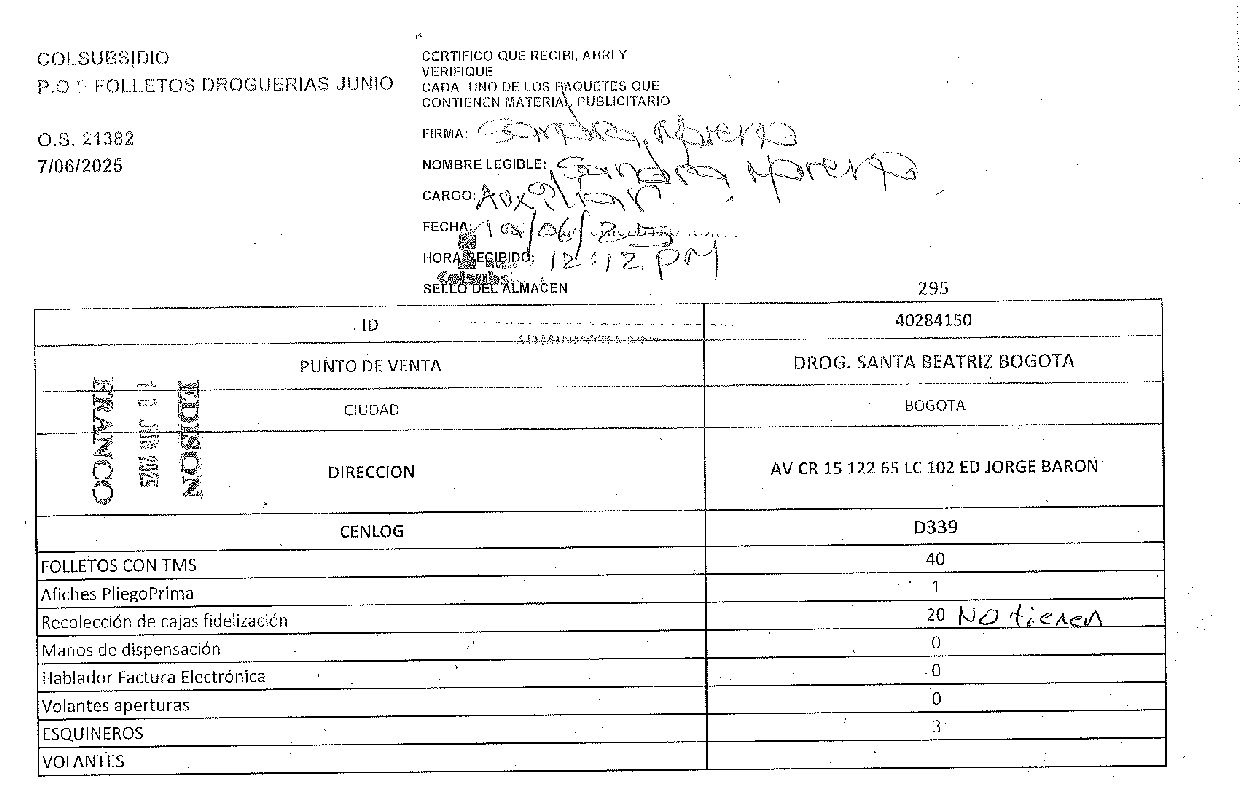 COLSUBSIDIO
P.O.P FOLLETOS DROGUERIAS JUNIO
O.S. 21382
7/06/2025
CERTIFICO QUE RECIBI, ABRI Y
VERIFIQUE
CADA UNO DE LOS PAQUETES QUE
CONTIENEN MATERIAL PUBLICITARIO
FIRMA: Sandra Moreno
NOMBRE LEGIBLE: Sandra Moreno
CARGO: Auxiliar
FECHA: 10/06/2025
HORA RECIBIDO: 12:12 PM
Colsubsi
SELLO DEL ALMACEN
295
ID 40284150
PUNTO DE VENTA DROG. SANTA BEATRIZ BOGOTA
CIUDAD BOGOTA
DIRECCION AV CR 15 122 65 LC 102 ED JORGE BARON
EDISON
10 JUN 2025
FRANCO
CENLOG D339
FOLLETOS CON TMS 40
Afiches PliegoPrima 1
Recolección de cajas fidelización 20 No tienen
Manos de dispensación 0
Hablador Factura Electrónica 0
Volantes aperturas 0
ESQUINEROS 3
VOLANTES